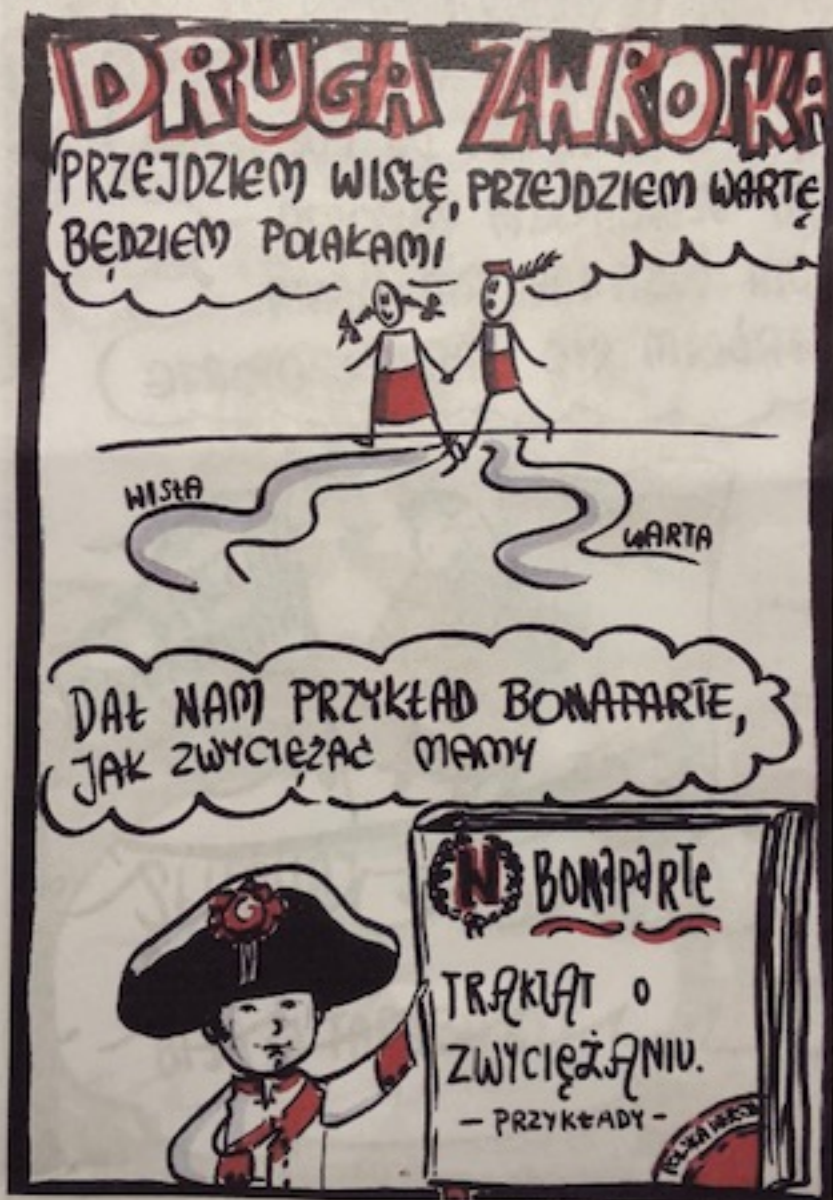 DRUGA ZWROTKA
PRZEJDZIEM WISŁĘ, PRZEJDZIEM WARTĘ
BĘDZIEM POLAKAMI
WISŁA
WARTA
DAŁ NAM PRZYKŁAD BONAPARTE,
JAK ZWYCIĘŻAĆ MAMY
N BONAPARTE
TRAKTAT O
ZWYCIĘŻANIU.
- PRZYKŁADY -
POLSKA WERSJA